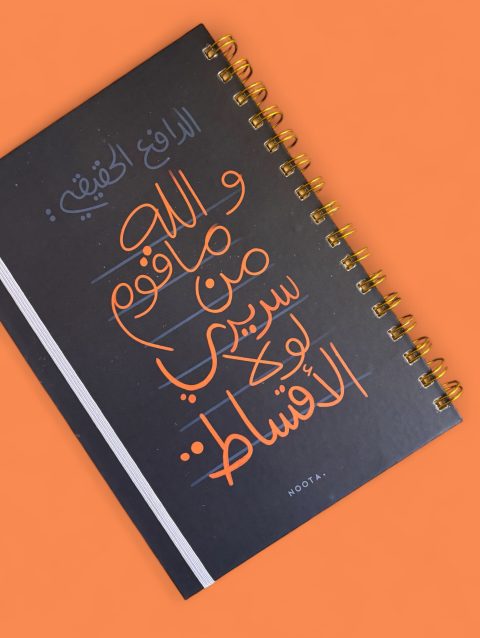 الدافع الحقيقي:
والله
ماقوم
من
سريري
لولا
الأقساط..
NOOTA.